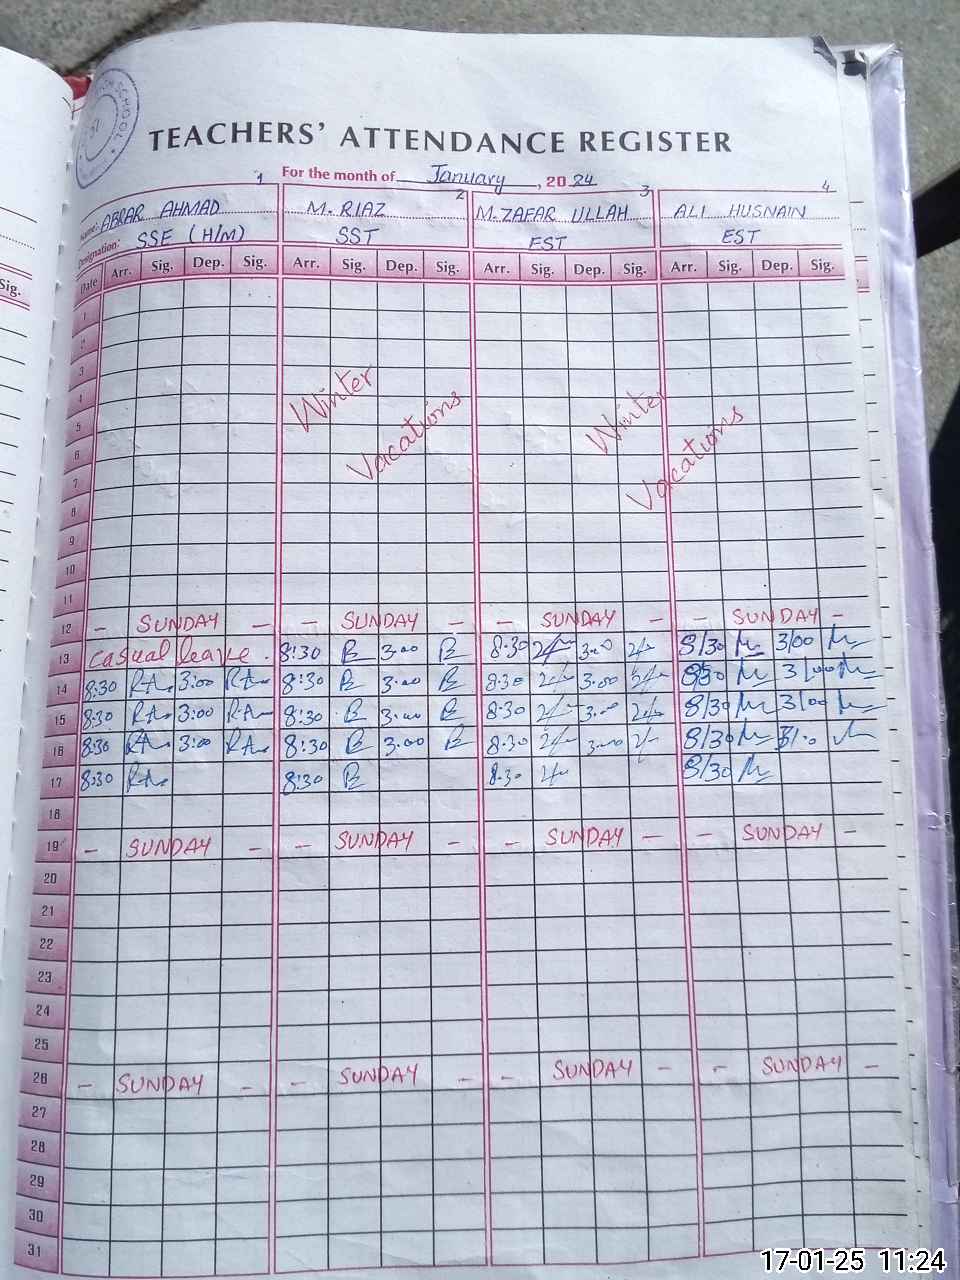 TEACHERS' ATTENDANCE REGISTER
For the month of January, 2024
1 2 3 4
Name: ABRAR AHMAD M. RIAZ M. ZAFAR ULLAH ALI HUSNAIN
Designation: SSE (H/M) SST EST EST
Date Arr. Sig. Dep. Sig. Arr. Sig. Dep. Sig. Arr. Sig. Dep. Sig. Arr. Sig. Dep. Sig.
1
2
3
4
5
6
7
8
9
10
11
Winter Vacations Winter Vacations
12 - SUNDAY - - SUNDAY - - SUNDAY - - SUNDAY -
13 Casual leave. 8:30 3:00 8:30 3:00 8/30 3/00
14 8:30 3:00 8:30 3:00 8:30 3:00 8/30 3/00
15 8:30 3:00 8:30 3:00 8:30 3:00 8/30 3/00
16 8:30 3:00 8:30 3:00 8:30 3:00 8/30
17 8:30 8:30 8:30 8/30
18
19 - SUNDAY - - SUNDAY - - SUNDAY - - SUNDAY -
20
21
22
23
24
25
26 - SUNDAY - - SUNDAY - - SUNDAY - - SUNDAY -
27
28
29
30
31
Sig.
17-01-25 11:24